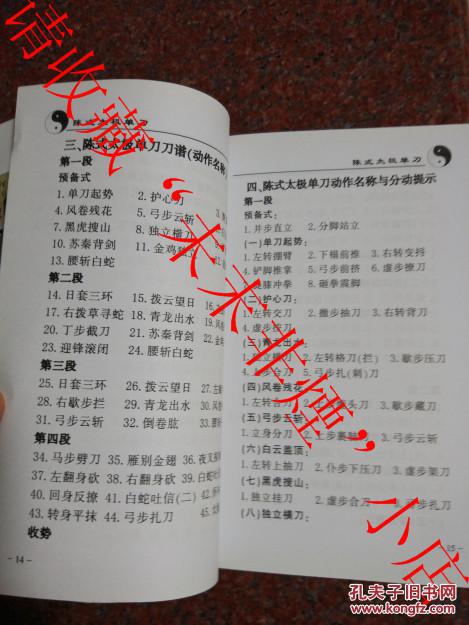 陈式太极单刀
三、陈式太极单刀刀谱(动作名称)
第一段
预备式
1.单刀起势 2.护心刀
4.风卷残花 5.弓步云斩
7.黑虎搜山 8.独立横刀
10.苏秦背剑 11.金鸡独立
13.腰斩白蛇
第二段
14.日套三环 15.拨云望日
17.右拨草寻蛇 18.青龙出水
20.丁步截刀 21.苏秦背剑
23.迎锋滚闭 24.腰斩白蛇
第三段
25.日套三环 26.拨云望日
28.右歇步拦 29.青龙出水
31.弓步云斩 32.倒卷肱
第四段
34.马步劈刀 35.雁别金翅
37.左翻身砍 38.右翻身砍
40.回身反撩 41.白蛇吐信(二)
43.转身平抹 44.弓步扎刀
收势
- 14 -
陈式太极单刀
四、陈式太极单刀动作名称与分动提示
第一段
预备式:
1.并步直立 2.分脚站立
(一)单刀起势:
1.左转掤臂 2.下榻前推 3.右转变捋
4.铲脚推掌 5.弓步前挤 6.虚步撩刀
7.提膝冲拳 8.砸拳震脚
(二)护心刀:
1.左转交刀 2.撤步抽刀 3.右转背刀
4.虚步按刀
(三)青龙出水:
1.独立横刀 2.左转格刀(拦) 3.歇步压刀
4.上步合刀 5.弓步扎(刺)刀
(四)风卷残花:
1.左转合刀 头刀 3.歇步藏刀
(五)弓步云斩:
1.立身分刀 2.上步裹 3.弓步云斩
(六)白云盖顶:
1.左转上抽刀 2.仆步下压刀 3.虚步架刀
(七)黑虎搜山:
1.独立挂刀 2.虚步合刀 3.弓步扎刀
(八)独立横刀:
请收藏“末末非煙”小店
孔夫子旧书网
www.kongfz.com